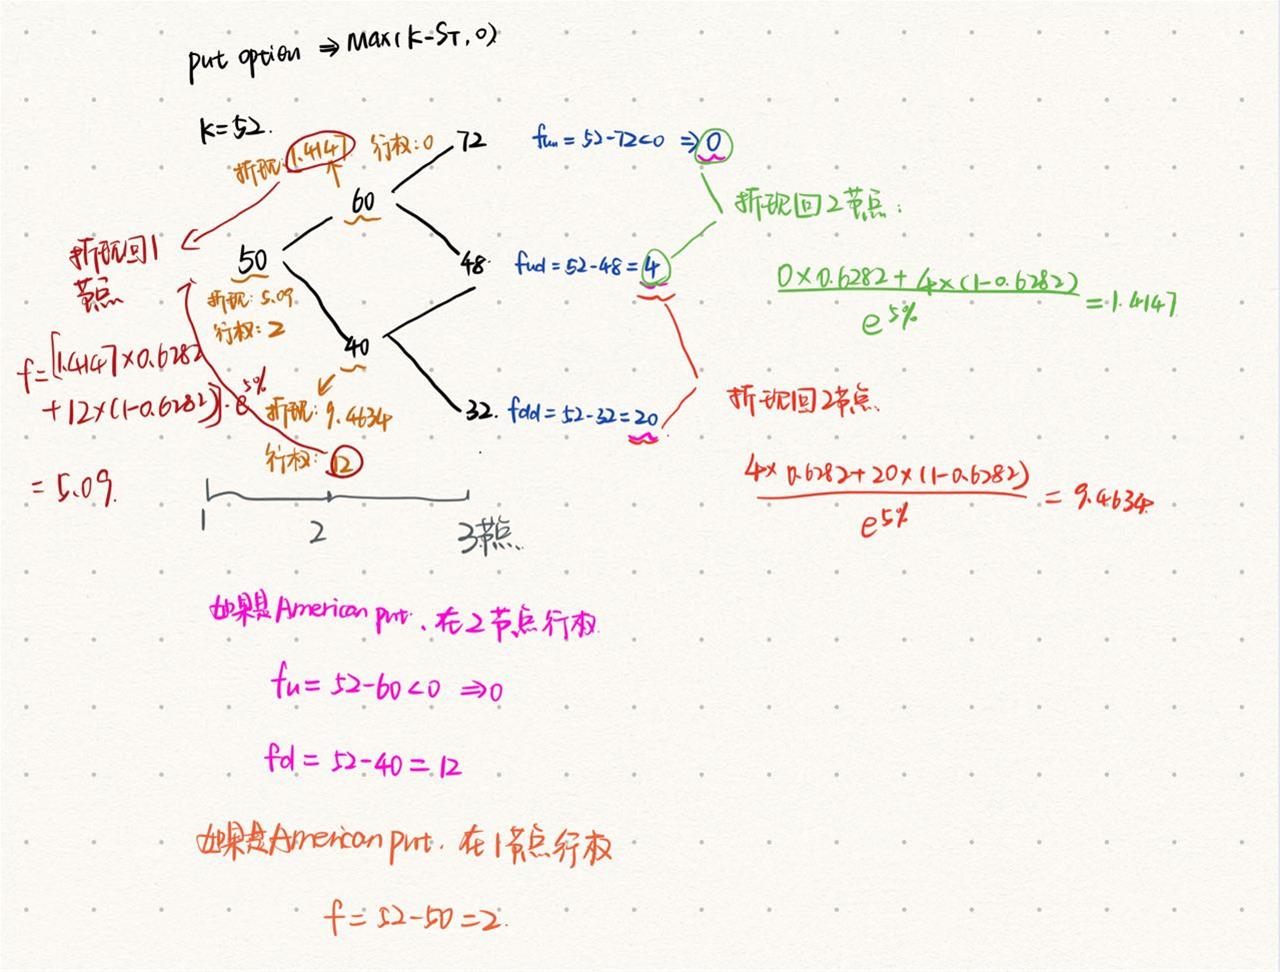 put option ⇒ Max(K-S_T, 0)
K=52.
折现: 1.4147 行权: 0
72
fuu = 52-72<0 ⇒ 0
60
折现回2节点:
折现回1
节点
50
48
fud = 52-48 = 4
0×0.6282 + 4×(1-0.6282)
e^5%
= 1.4147
折现: 5.09
行权: 2
40
f = [1.4147×0.6282
+ 12×(1-0.6282)]·e^5%
折现: 9.4634
32.
fdd = 52-32 = 20
折现回2节点.
行权: 12
4×0.6282+20×(1-0.6282)
e^5%
= 9.4634
= 5.09.
1
2
3节点.
如果是American put. 在2节点行权
fu = 52-60<0 ⇒ 0
fd = 52-40 = 12
如果是American put. 在1节点行权
f = 52-50 = 2.